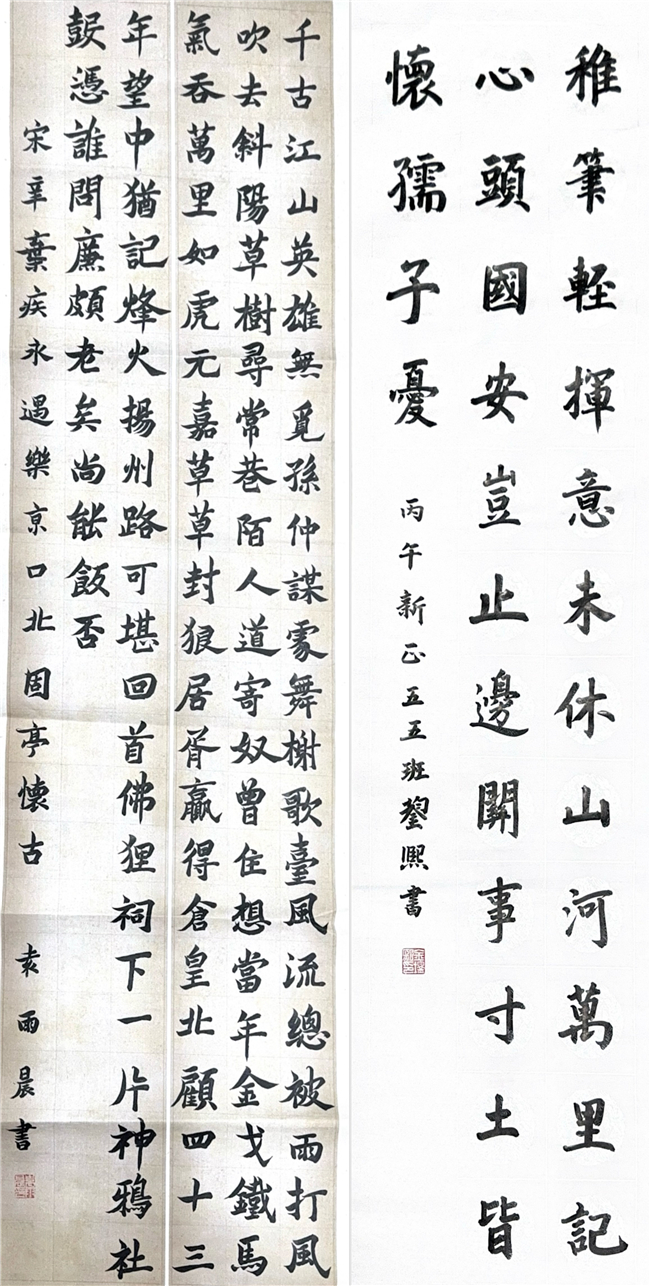 稚筆輕揮意未休山河萬里記
心頭國安豈止邊關事寸土皆
懷孺子憂
丙午新正五五班熙書
千古江山英雄無覓孫仲謀處舞榭歌臺風流總被雨打風
吹去斜陽草樹尋常巷陌人道寄奴曾住想當年金戈鐵馬
氣吞萬里如虎元嘉草草封狼居胥贏得倉皇北顧四十三
年望中猶記烽火揚州路可堪回首佛狸祠下一片神鴉社
鼓憑誰問廉頗老矣尚能飯否
宋辛棄疾永遇樂京口北固亭懷古 袁雨晨書